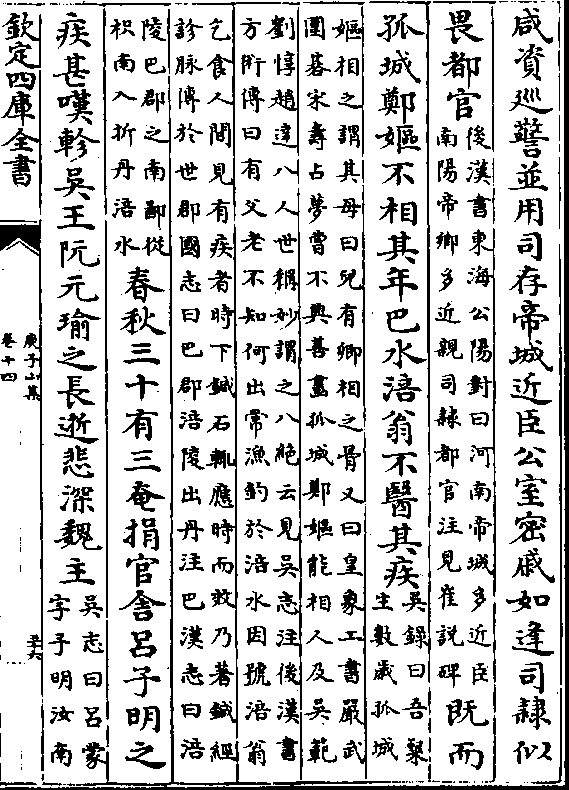 咸資廵警並用司存帝城近臣公室密戚如逢司隸似
畏都官
後漢書東海公陽對曰河南帝城多近臣
南陽帝鄉多近親司隸都官注見崔說碑
既而
孤城鄭嫗不相其年巴水涪翁不醫其疾
吳錄曰吾粲
生數歲孤城
嫗相之謂其母曰兒有卿相之骨又曰皇象工書嚴武
圍棊宋壽占夢曹不興善畫孤城鄭嫗能相人及吳範
劉惇趙逹八人世稱妙謂之八絶云見吳志注後漢書
方術傳曰有父老不知何出常漁釣於涪水因號涪翁
乞食人間見有疾者時下鍼石輒應時而效乃著鍼經
診脉傳於世郡國志曰巴郡涪陵出丹注巴漢志曰涪
陵巴郡之南鄙從
枳南入折丹涪水
春秋三十有三奄捐官舍吕子明之
疾甚嘆軫吳王阮元瑜之長逝悲深魏主
吳志曰吕蒙
字子明汝南
欽定四庫全書
庾子山集
卷十四